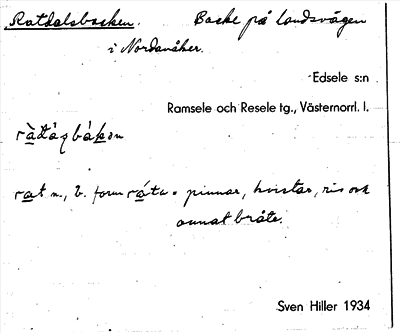 Ratdalsbacken. Backe på landsvägen
i Nordanåker.
Edsele s:n
Ramsele och Resele tg., Västernorrl. l.
rat n., b. form råta = pinnar, kvistar, ris och
annat bråte.
Sven Hiller 1934